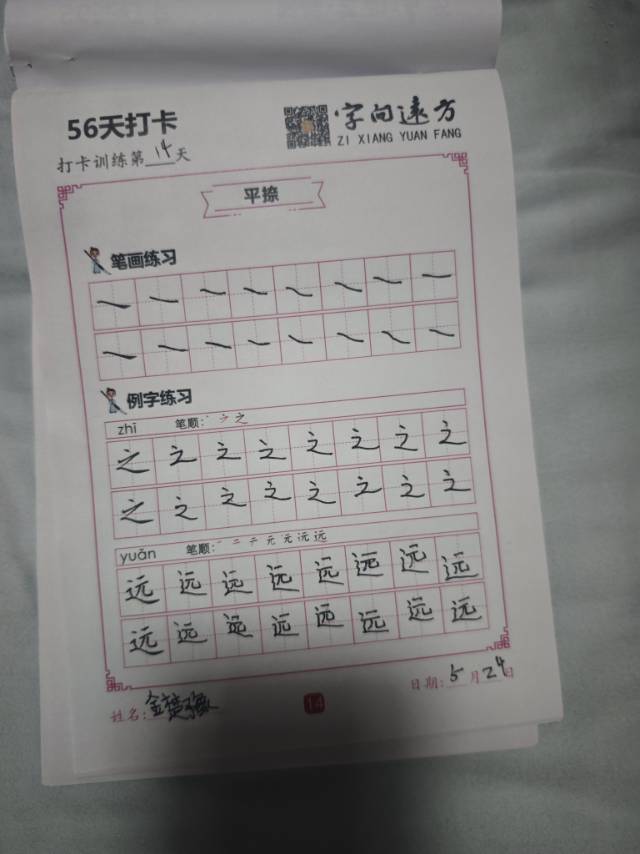 56天打卡
字向远方
ZI XIANG YUAN FANG
打卡训练第14天
平捺
笔画练习
例字练习
zhī 笔顺:丶 ㇇ 之
之 之 之 之 之 之 之 之
之 之 之 之 之 之 之 之
yuǎn 笔顺:一 二 テ 元 元 沅 远
远 远 远 远 远 远 远 远
远 远 远 远 远 远 远 远
姓名:金楚
14
日期:5月24日